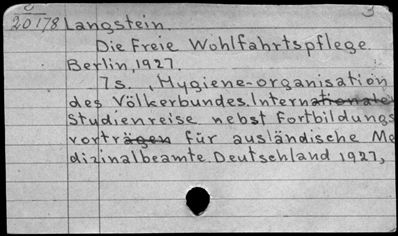 3
20178 Langstein.
Die Freie Wohlfahrtspflege.
Berlin, 1927.
7s. , Hygiene-organisation
des Völkerbundes. Internationale
Studienreise nebst Fortbildungs
vorträgen für ausländische Me
dizinalbeamte. Deutschland 1927,